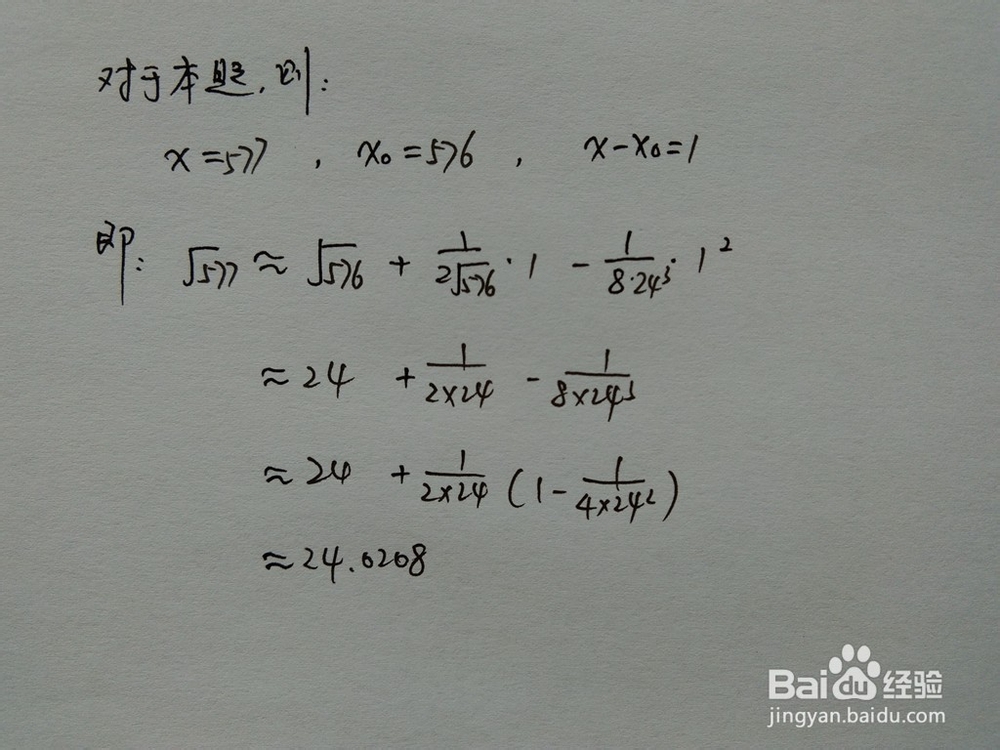 对于本题,则:
x=577 , x₀=576 , x-x₀=1
即: √577 ≈ √576 + 1/(2√576)·1 - 1/(8·24³)·1²
≈ 24 + 1/(2×24) - 1/(8×24³)
≈ 24 + 1/(2×24) (1 - 1/(4×24²))
≈ 24.0208
Baidu经验
jingyan.baidu.com